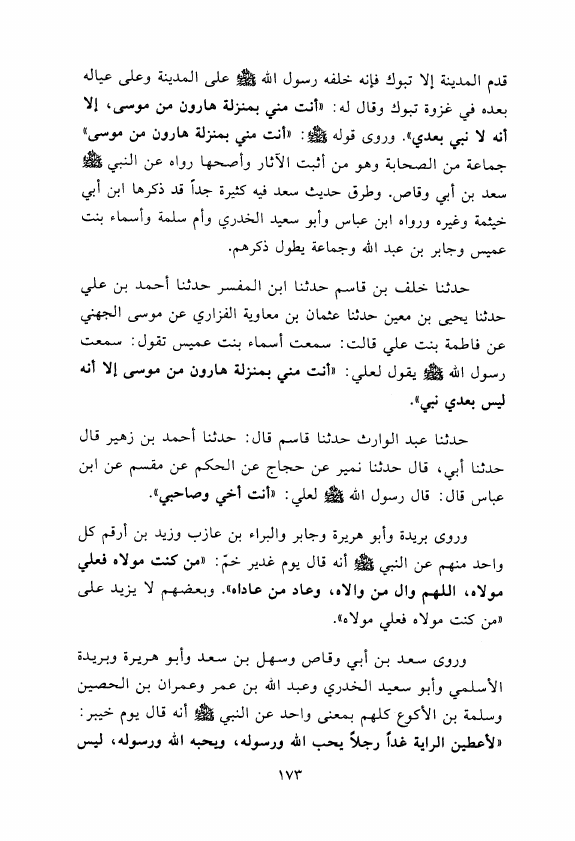 قدم المدينة إلا تبوك فإنه خلفه رسول الله ﷺ على المدينة وعلى عياله
بعده في غزوة تبوك وقال له: «أنت مني بمنزلة هارون من موسى، إلا
أنه لا نبي بعدي». وروى قوله ﷺ: «أنت مني بمنزلة هارون من موسى»
جماعة من الصحابة وهو من أثبت الآثار وأصحها رواه عن النبي ﷺ
سعد بن أبي وقاص. وطرق حديث سعد فيه كثيرة جداً قد ذكرها ابن أبي
خيثمة وغيره ورواه ابن عباس وأبو سعيد الخدري وأم سلمة وأسماء بنت
عميس وجابر بن عبد الله وجماعة يطول ذكرهم.
حدثنا خلف بن قاسم حدثنا ابن المفسر حدثنا أحمد بن علي
حدثنا يحيى بن معين حدثنا عثمان بن معاوية الفزاري عن موسى الجهني
عن فاطمة بنت علي قالت: سمعت أسماء بنت عميس تقول: سمعت
رسول الله ﷺ يقول لعلي: «أنت مني بمنزلة هارون من موسى إلا أنه
ليس بعدي نبي».
حدثنا عبد الوارث حدثنا قاسم قال: حدثنا أحمد بن زهير قال
حدثنا أبي، قال حدثنا نمير عن حجاج عن الحكم عن مقسم عن ابن
عباس قال: قال رسول الله ﷺ لعلي: «أنت أخي وصاحبي».
وروى بريدة وأبو هريرة وجابر والبراء بن عازب وزيد بن أرقم كل
واحد منهم عن النبي ﷺ أنه قال يوم غدير خمّ: «من كنت مولاه فعلي
مولاه، اللهم وال من والاه، وعاد من عاداه». وبعضهم لا يزيد على
«من كنت مولاه فعلي مولاه».
وروى سعد بن أبي وقاص وسهل بن سعد وأبو هريرة وبريدة
الأسلمي وأبو سعيد الخدري وعبد الله بن عمر وعمران بن الحصين
وسلمة بن الأكوع كلهم بمعنى واحد عن النبي ﷺ أنه قال يوم خيبر:
«لأعطين الراية غداً رجلاً يحب الله ورسوله، ويحبه الله ورسوله، ليس
١٧٣